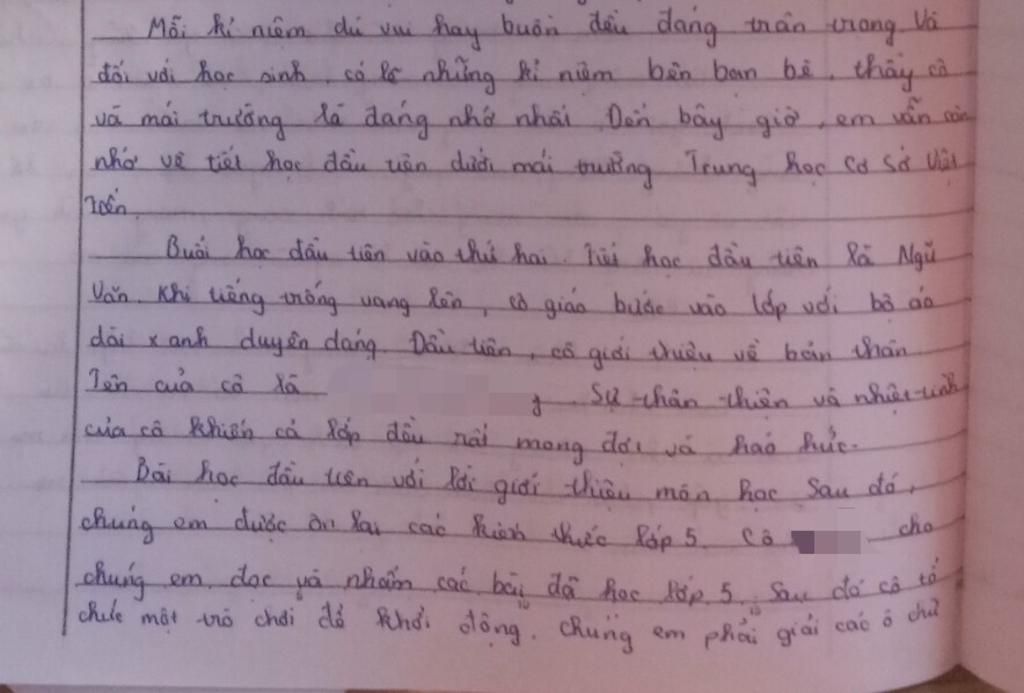 Mỗi kỉ niệm dù vui hay buồn đều đáng trân trọng. Và
đối với học sinh, có lẽ những kỉ niệm bên bạn bè, thầy cô
và mái trường là đáng nhớ nhất. Đến bây giờ, em vẫn còn
nhớ về tiết học đầu tiên dưới mái trường Trung học Cơ Sở Việt
Tiến.
Buổi học đầu tiên vào thứ hai. Tiết học đầu tiên là Ngữ
Văn. Khi tiếng trống vang lên, cô giáo bước vào lớp với bộ áo
dài xanh duyên dáng. Đầu tiên, cô giới thiệu về bản thân
Tên của cô là . Sự thân thiện và nhiệt tình
của cô khiến cả lớp đều rất mong đợi và háo hức.
Bài học đầu tiên với lời giới thiệu môn học. Sau đó,
chúng em được ôn lại các kiến thức lớp 5. Cô cho
chúng em đọc và nhẩm các bài đã học lớp 5. Sau đó cô tổ
chức một trò chơi để khởi động. Chúng em phải giải các ô chữ